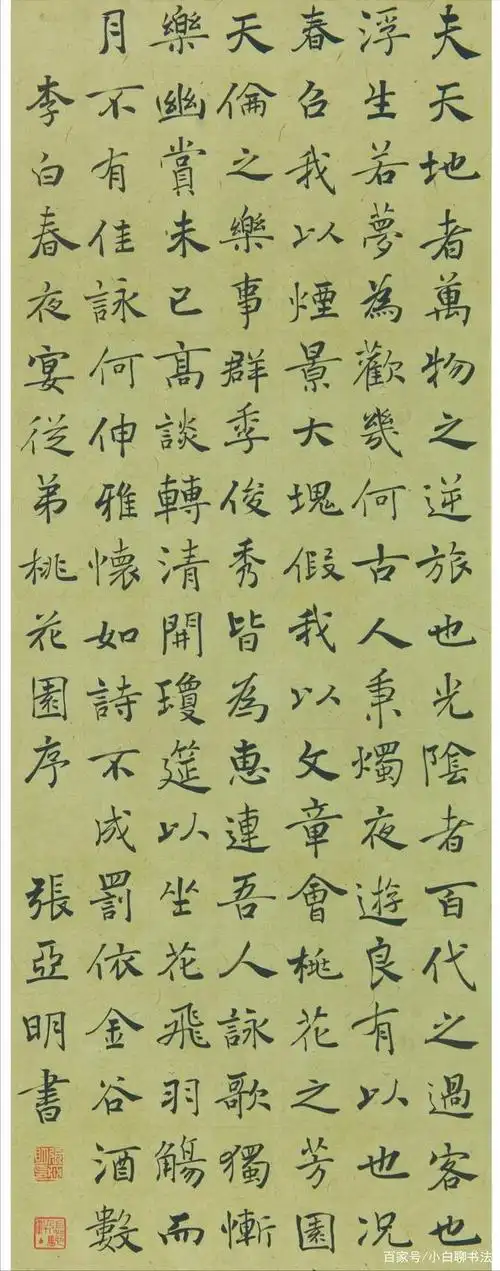 夫天地者萬物之逆旅也光陰者百代之過客也
浮生若夢為歡幾何古人秉燭夜遊良有以也况
春召我以煙景大塊假我以文章會桃花之芳園
天倫之樂事群季俊秀皆為惠連吾人詠歌獨慚
樂幽賞未已高談轉清開瓊筵以坐花飛羽觴而
月不有佳詠何伸雅懷如詩不成罰依金谷酒數
李白春夜宴從弟桃花園序 張亞明書
百家号/小白聊书法